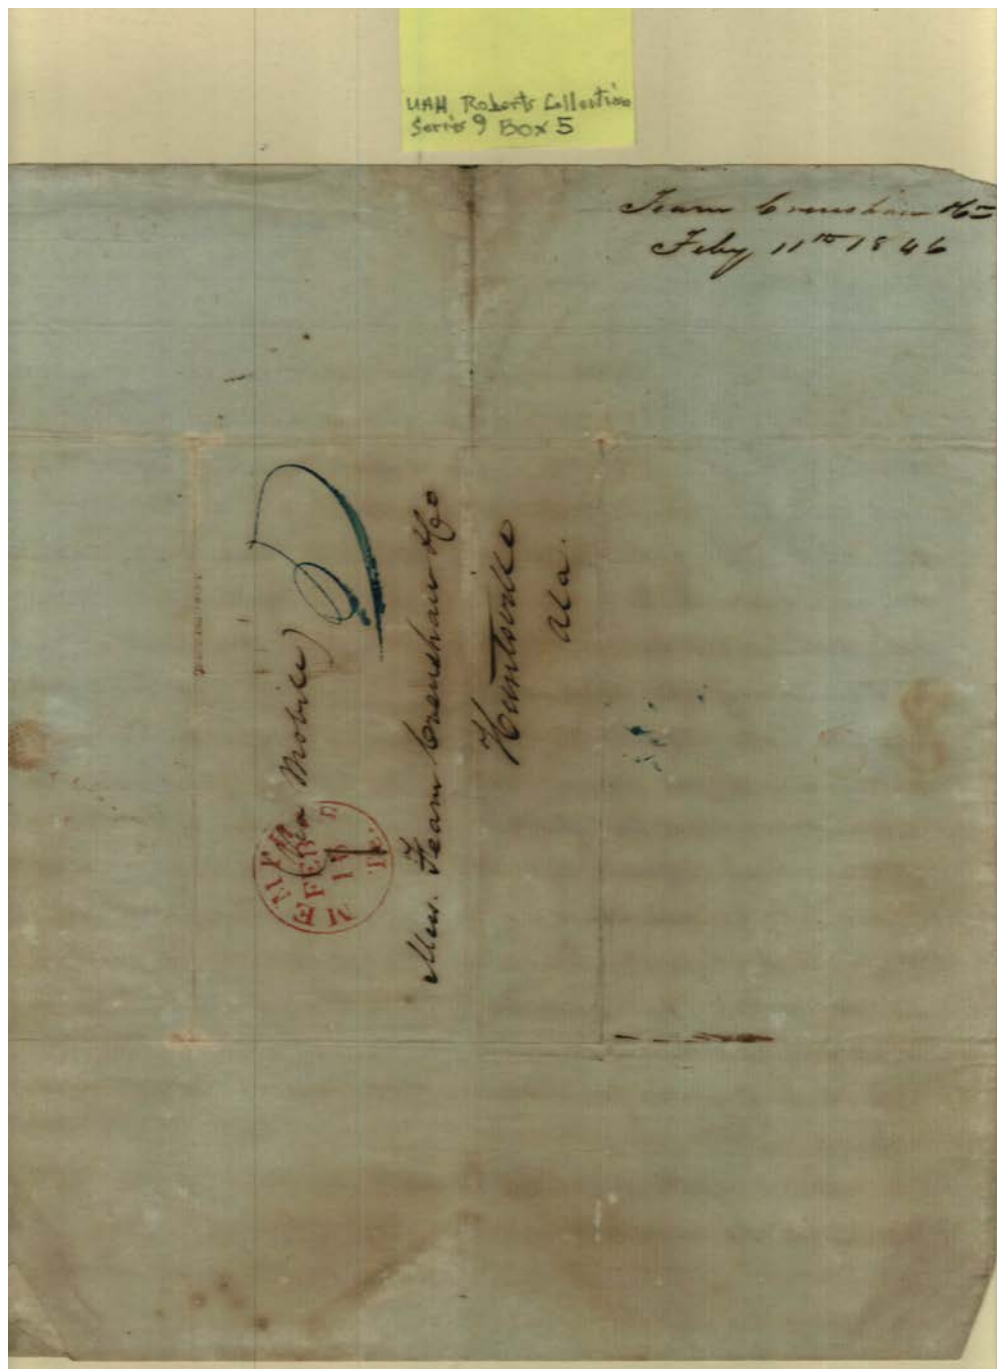 UAH Roberts Collection
Series 9 Box 5
Fearn Crenshaw &
Feby 11th 1846
Mobile)
MEMPH
FEB
Te.
Mess. Fearn Crenshaw & Co
Huntsville
Ala.